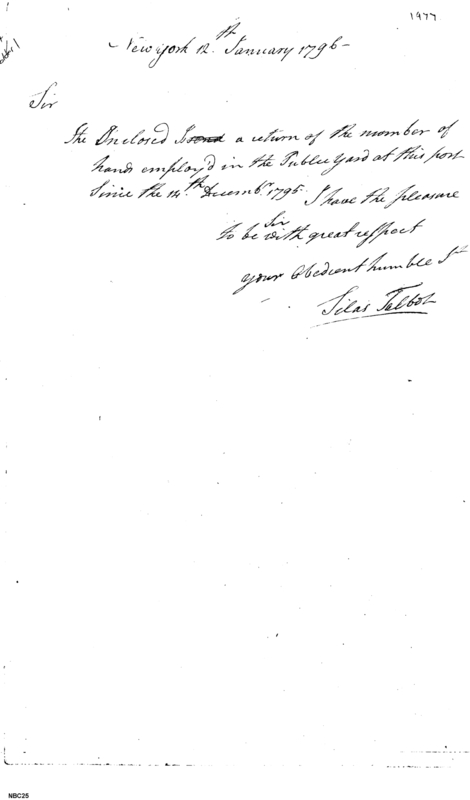 1977
New york 12th January 1796-
Sir
The Enclosed is a return of the number of
hands employ'd in the Publick Yard at this port
Since the 14th Decembr 1795. I have the pleasure
to be Sir with great respect
your Obedient humble St
Silas Talbot
NBC25